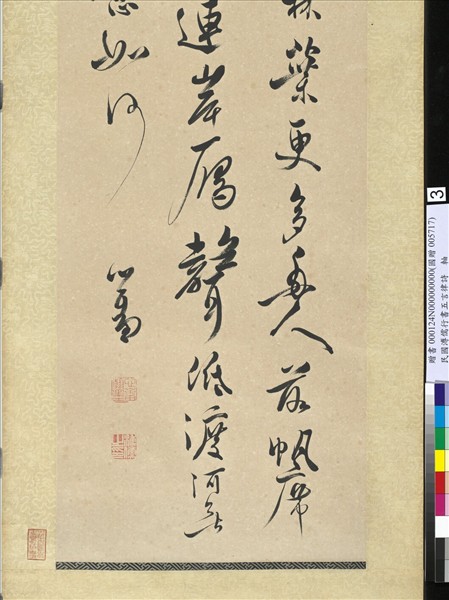 葉更多舟人落帆席
連岸雁聲低渡河
如何
心畬
3
贈書000124N000000000(國贈005717)
民國溥儒行書五言律詩 軸